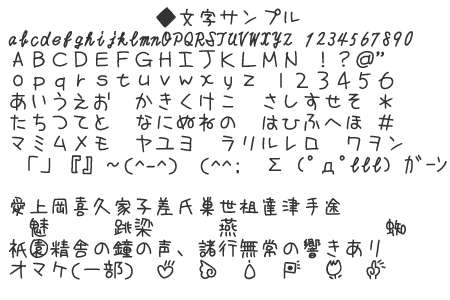 ◆文字サンプル
abcdefghijklmnOPQRSTUVWXYZ 1234567890
ABCDEFGHIJKLMN !?@"
opqrstuvwxyz 123456
あいうえお かきくけこ さしすせそ *
たちつてと なにぬねの はひふへほ #
マミムメモ ヤユヨ ラリルレロ ワヲン
「」『』~(^-^) (^^; Σ(°д°lll) ガーン
愛上岡喜久家子差氏巣世祖達津手途
魅 跳梁 燕 蜘
祇園精舎の鐘の声、諸行無常の響きあり
オマケ(一部)